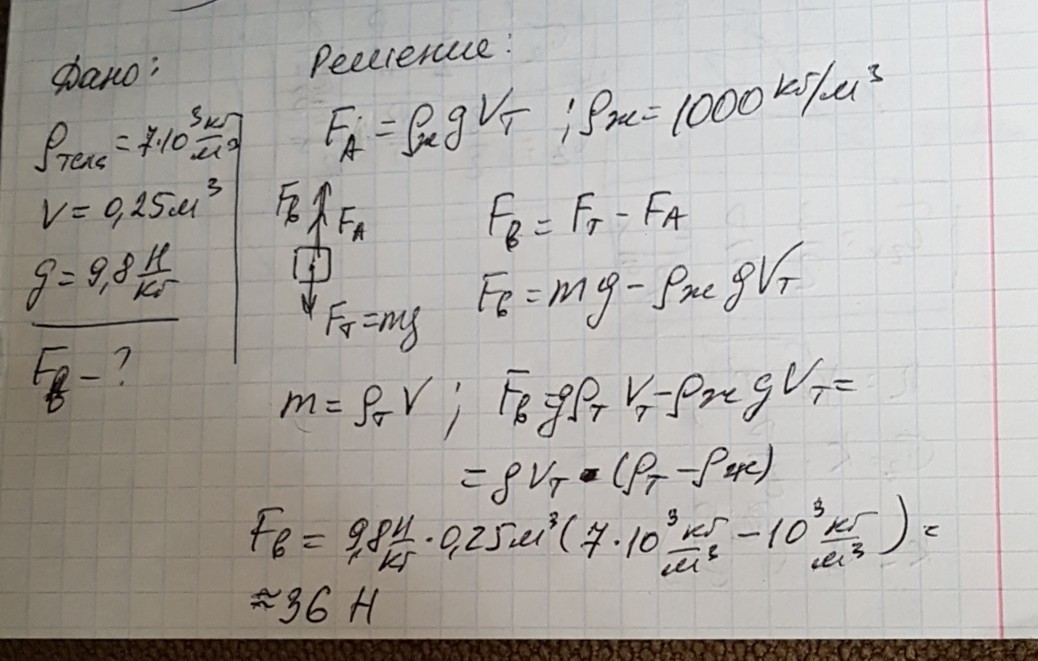 Дано:
ρтела = 7·10³ кг/м³
V = 0,25 м³
g = 9,8 Н/кг
Fв – ?
Решение:
FA = ρж g VT ; ρж = 1000 кг/м³
Fв FA
FT = mg
Fв = FT – FA
Fв = mg – ρж g VT
m = ρT V ; Fв = gρT VT – ρж g VT =
= g VT · (ρT – ρж)
Fв = 9,8 Н/кг · 0,25 м³ (7·10³ кг/м³ – 10³ кг/м³) =
≈ 36 Н